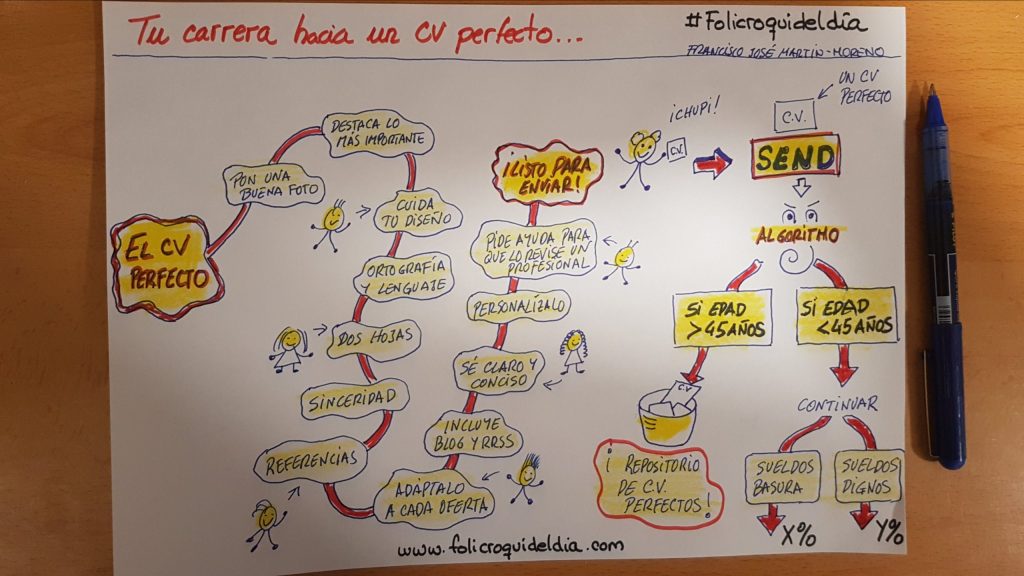 Tu carrera hacia un CV perfecto...
#Folicroquideldía
FRANCISCO JOSÉ MARTÍN-MORENO
EL CV
PERFECTO
PON UNA
BUENA FOTO
DESTACA LO
MÁS IMPORTANTE
CUIDA
TU DISEÑO
ORTOGRAFÍA
Y LENGUAJE
DOS HOJAS
SINCERIDAD
REFERENCIAS
ADÁPTALO
A CADA OFERTA
INCLUYE
BLOG Y RRSS
SÉ CLARO Y
CONCISO
PERSONALÍZALO
PIDE AYUDA PARA
QUE LO REVISE UN
PROFESIONAL
¡LISTO PARA
ENVIAR!
¡CHUPI!
C.V.
UN CV
PERFECTO
C.V.
SEND
ALGORITMO
SI EDAD
>45 AÑOS
SI EDAD
<45 AÑOS
CV
¡REPOSITORIO
DE C.V.
PERFECTOS!
CONTINUAR
SUELDOS
BASURA
SUELDOS
DIGNOS
X%
Y%
www.folicroquideldia.com